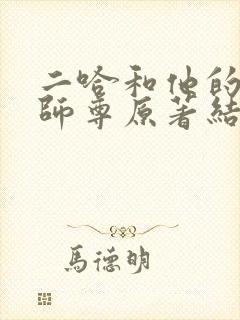 二哈和他的
師尊原著結
馬德明